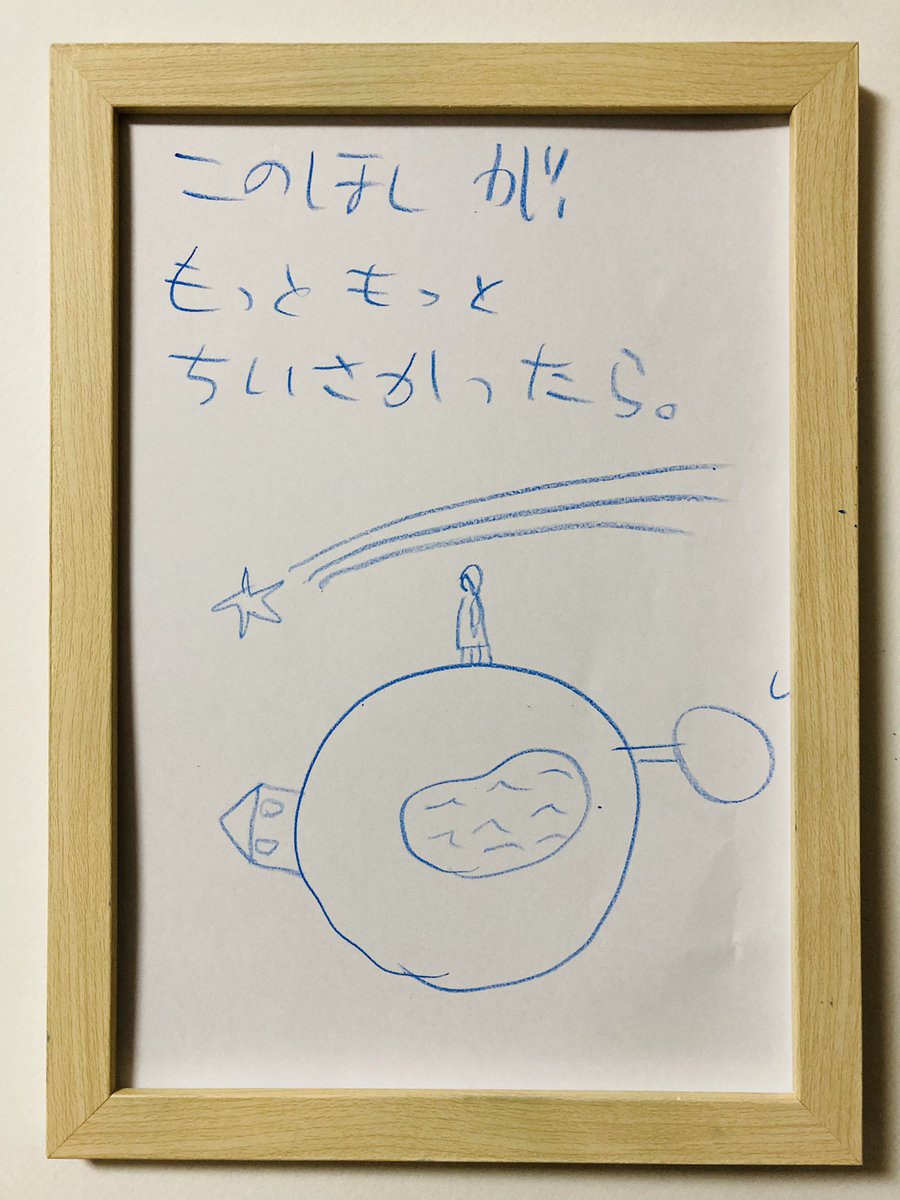 このほし が、
もっと もっと
ちいさかったら。